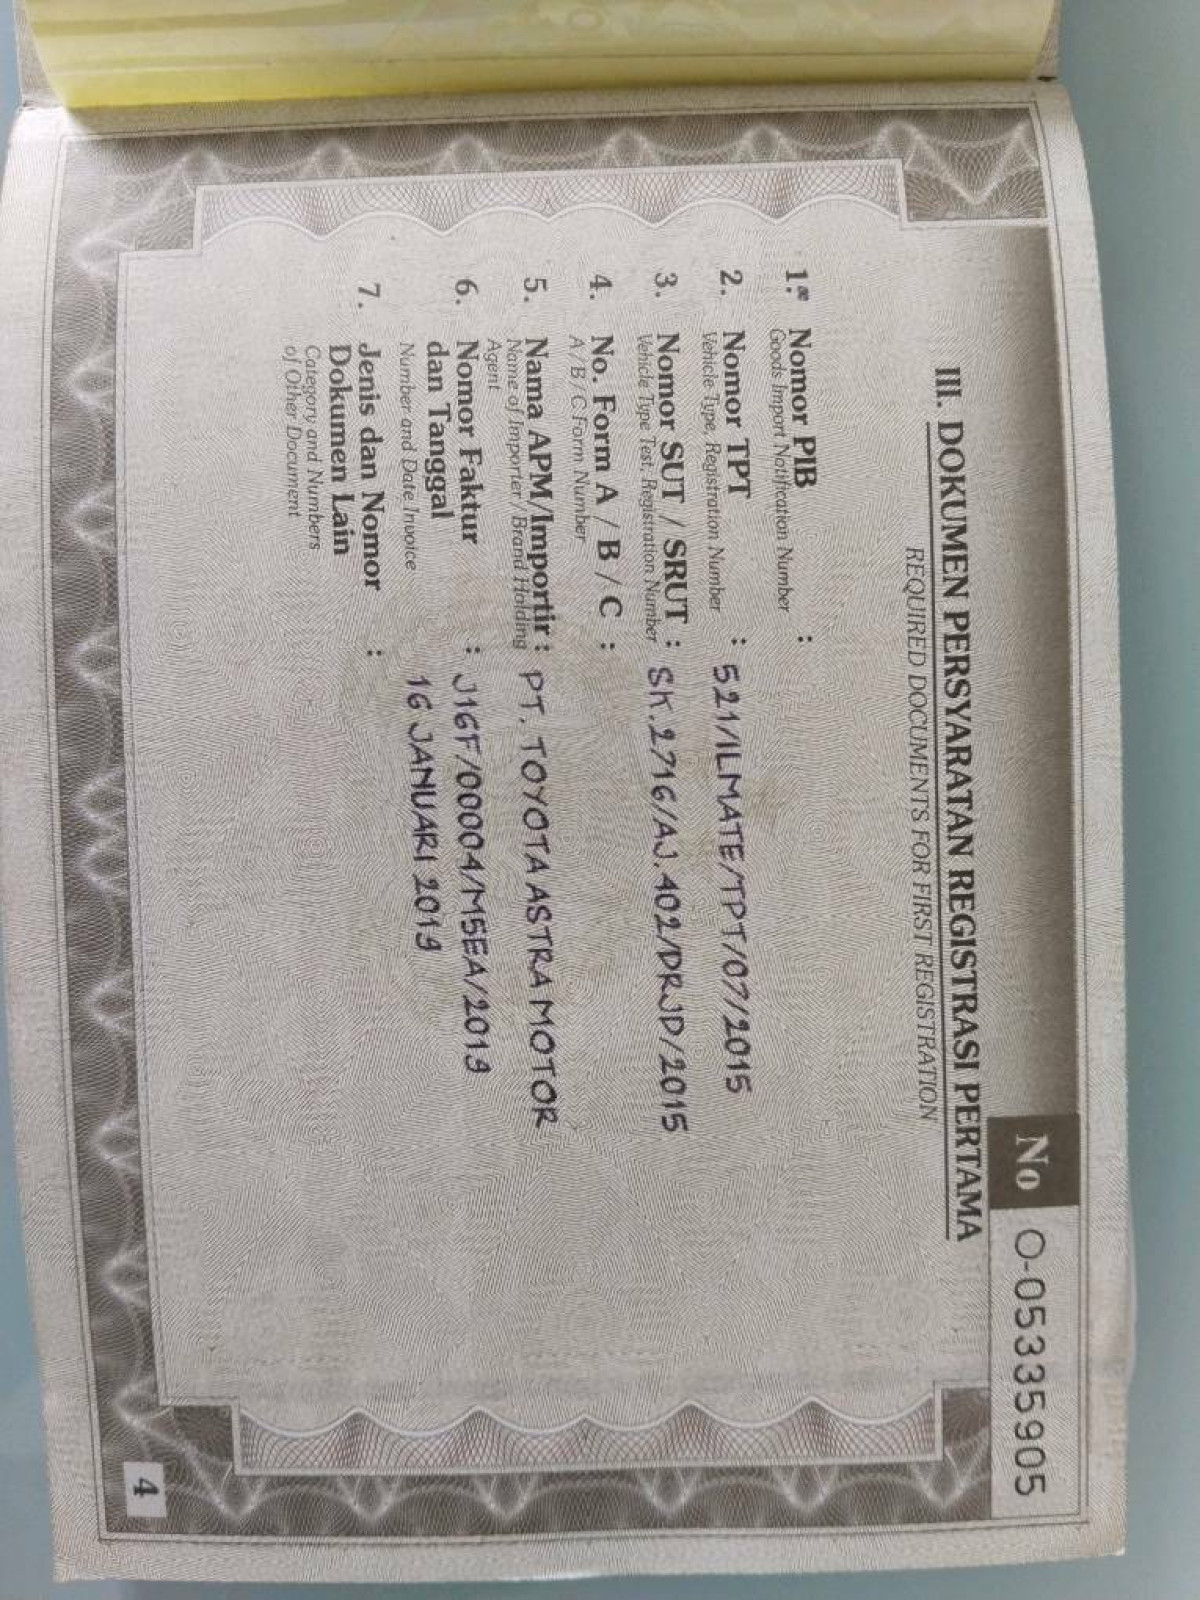 No O-05335905
III. DOKUMEN PERSYARATAN REGISTRASI PERTAMA
REQUIRED DOCUMENTS FOR FIRST REGISTRATION
1. Nomor PIB :
Goods Import Notification Number
2. Nomor TPT : 521/ILMATE/TPT/07/2015
Vehicle Type, Registration Number
3. Nomor SUT / SRUT : SK.2716/AJ.402/DRJD/2015
Vehicle Type Test, Registration Number
4. No. Form A / B / C :
A / B / C Form Number
5. Nama APM/Importir : PT. TOYOTA ASTRA MOTOR
Name of Importer / Brand Holding
Agent
6. Nomor Faktur : J16F/00004/M5EA/2019
dan Tanggal 16 JANUARI 2019
Number and Date Invoice
7. Jenis dan Nomor :
Dokumen Lain
Category and Numbers
of Other Document
4